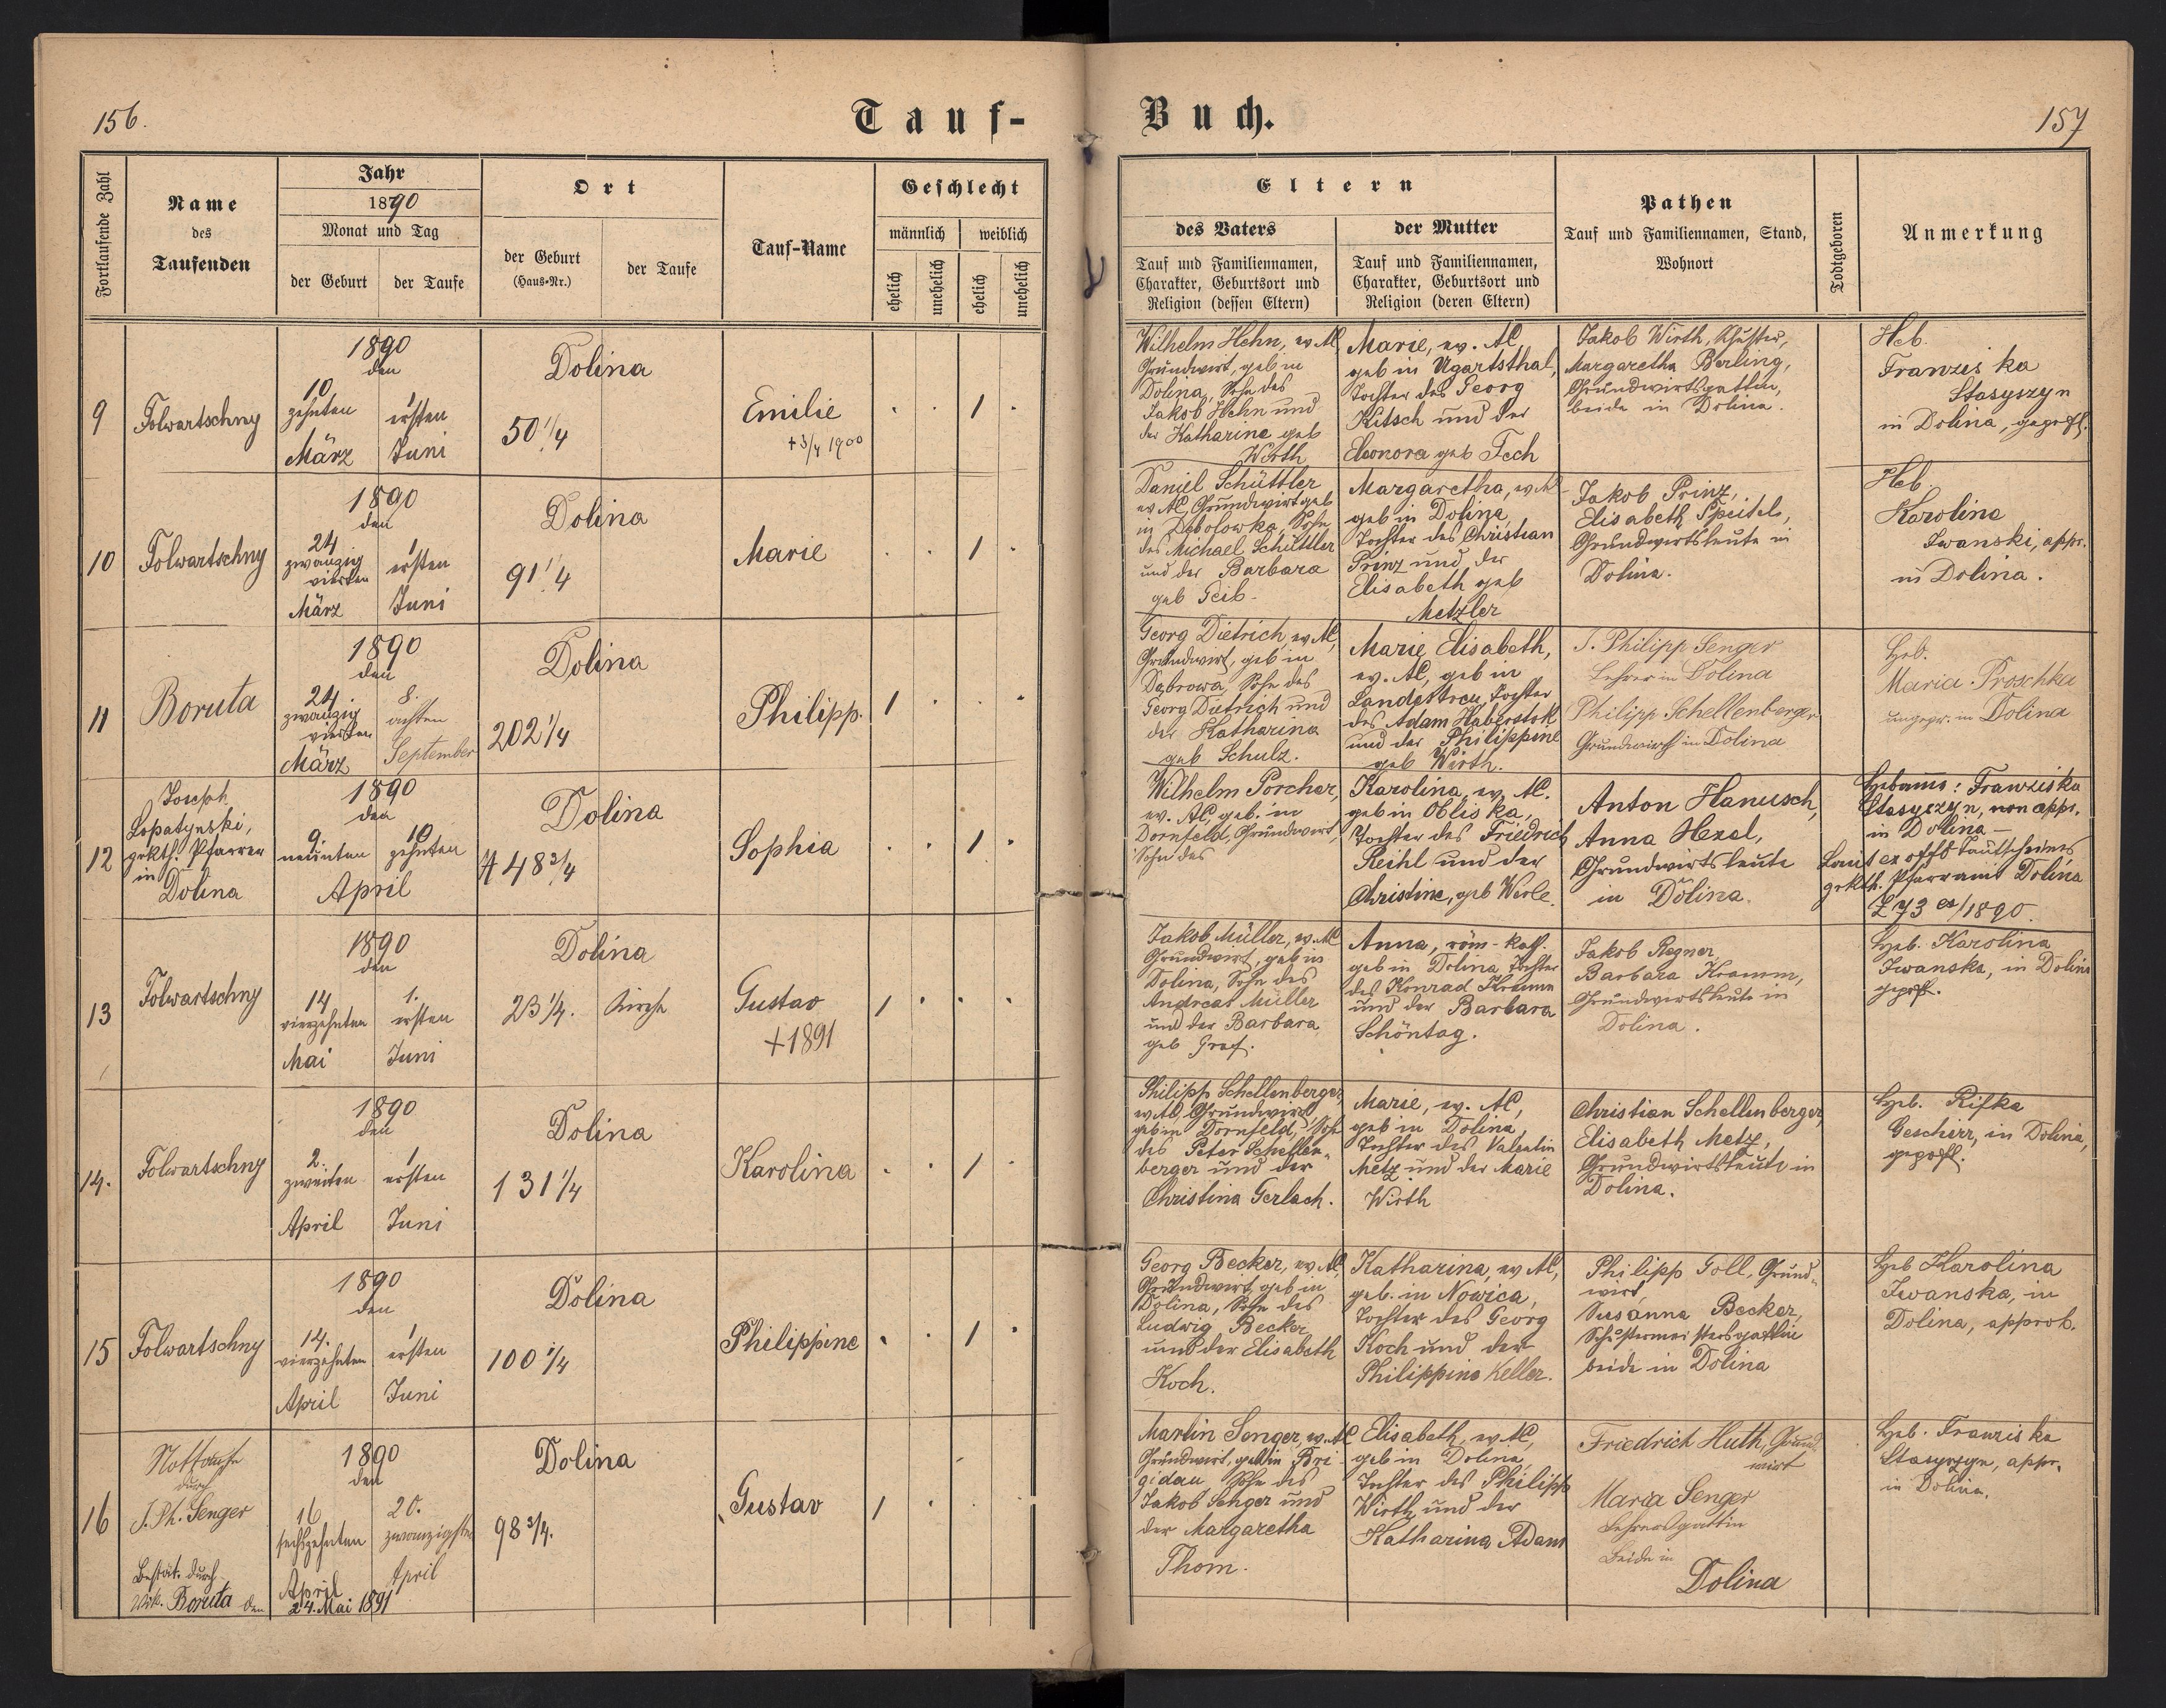 156.
Tauf-
Fortlaufende Zahl
Name
des
Taufenden
Jahr
1890
Monat und Tag
der Geburt
der Taufe
Ort
der Geburt
(Haus-Nr.)
der Taufe
Tauf-Name
Geschlecht
männlich
weiblich
ehelich
unehelich
ehelich
unehelich
Buch.
157
Eltern
des Vaters
Tauf und Familiennamen,
Charakter, Geburtsort und
Religion (dessen Eltern)
der Mutter
Tauf und Familiennamen,
Charakter, Geburtsort und
Religion (deren Eltern)
Pathen
Tauf und Familiennamen, Stand,
Wohnort
Todtgeboren
Anmerkung
9
Folwartschny
1890
den
10
zehnten
März
1
ersten
Juni
Dolina
50 1/4
Emilie
+ 3/4 1900
1
Wilhelm Hehn, ev. AC,
Grundwirt, geb in
Dolina, Sohn des
Jakob Hehn und
der Katharine geb
Wirth
Marie, ev. AC,
geb in Ugartsthal,
Tochter des Georg
Kitsch und der
Eleonora geb Fech
Jakob Wirth, Schuster,
Margaretha Berling,
Grundwirtsgattin,
beide in Dolina.
Heb.
Franziska
Stasyszyn
in Dolina, geprft.
10
Folwartschny
1890
den
24
zwanzig
vierten
März
1
ersten
Juni
Dolina
91 1/4
Marie
1
Daniel Schüttler
ev AC, Grundwirt geb
in Debolowka, Sohn
des Michael Schüttler
und der Barbara
geb Geib
Margaretha, ev AC
geb in Dolina,
Tochter des Christian
Prinz und der
Elisabeth geb
Metzler
Jakob Prinz,
Elisabeth Speitel,
Grundwirtsleute in
Dolina.
Heb.
Karolina
Iwanski, appr.
in Dolina.
11
Boruta
1890
den
24.
zwanzig
vierten
März
8.
achten
September
Dolina
202 1/4
Philipp.
1
Georg Dietrich, ev AC,
Grundwirt, geb in
Dąbrowa, Sohn des
Georg Dietrich und
der Katharina
geb Schulz.
Marie Elisabeth,
ev. AC, geb in
Landestreu, Tochter
des Adam Haberstok
und der Philippine
geb Wirth.
J. Philipp Senger
Lehrer in Dolina
Philipp Schellenberger
Grundwirth in Dolina
Heb.
Maria Proschka
ungepr. in Dolina
12
Joseph
Lopatynski,
grkth. Pfarrer
in
Dolina
1890
den
9.
neunten
10
zehnten
April
Dolina
A 48 3/4
Sophia
1
Wilhelm Porcher,
ev. AC, geb. in
Dornfeld, Grundwirt,
Sohn des
Karolina, ev. AC.
geb in Obliska,
Tochter des Friedrich
Reihl und der
Christine, geb Werle.
Anton Hanusch,
Anna Hezel,
Grundwirtsleute
in Dolina.
Hebamme: Franziska
Stasyszyn, non appr.
in Dolina –
Laut ex offo Taufscheines
grkth. Pfarramt Dolina
Z 73 ex/1890.
13
Folwartschny
1890
den
14
vierzehnten
Mai
1.
ersten
Juni
Dolina
23 1/4.
Kirche
Gustav
+ 1891
1
Jakob Müller, ev. AC
Grundwirt, geb in
Dolina, Sohn des
Andreas Müller
und der Barbara
geb Graf.
Anna, röm-kath.
geb in Dolina, Tochter
des Konrad Kramm
und der Barbara
Schöntag.
Jakob Regner,
Barbara Kramm,
Grundwirtsleute in
Dolina.
Heb. Karolina
Iwanska, in Dolina
geprft.
14.
Folwartschny
1890
den
2.
zweiten
April
1
ersten
Juni
Dolina
131 1/4
Karolina
1
Philipp Schellenberger,
ev AC, Grundwirt,
geb in Dornfeld, Sohn
des Peter Schellen-
berger und der
Christina Gerlach.
Marie, ev. AC,
geb in Dolina,
Tochter des Valentin
Metz und der Marie
Wirth
Christian Schellenberger,
Elisabeth Metz,
Grundwirtsleute in
Dolina.
Heb. Rifka
Geschirr, in Dolina,
geprft.
15
Folwartschny
1890
den
14.
vierzehnten
April
1
ersten
Juni
Dolina
100 1/4
Philippine
1
Georg Becker, ev. AC,
Grundwirt, geb in
Dolina, Sohn des
Ludwig Becker
und der Elisabeth
Koch.
Katharina, ev AC,
geb. in Nowica,
Tochter des Georg
Koch und der
Philippina Keller.
Philipp Toll, Grund-
wirt,
Susanna Becker,
Schustermeistersgattin
beide in Dolina
Heb Karolina
Iwanska, in
Dolina, approb.
16
Nottaufe
durch
J. Ph. Senger
Bestät. durch
Vik. Boruta den
24. Mai 1891
1890
den
16
sechszehnten
April
20.
zwanzigsten
April
Dolina
98 3/4.
Gustav
1
Martin Senger, ev. AC
Grundwirt, geb in Bri-
gidau, Sohn des
Jakob Senger und
der Margaretha
Thom.
Elisabeth, ev. AC,
geb in Dolina,
Tochter des Philipp
Wirth und der
Katharina Adam
Friedrich Huth, Grund-
wirt
Maria Senger
Lehrersgattin
Beide in
Dolina
Heb. Franziska
Stasyszyn, appr.
in Dolina.